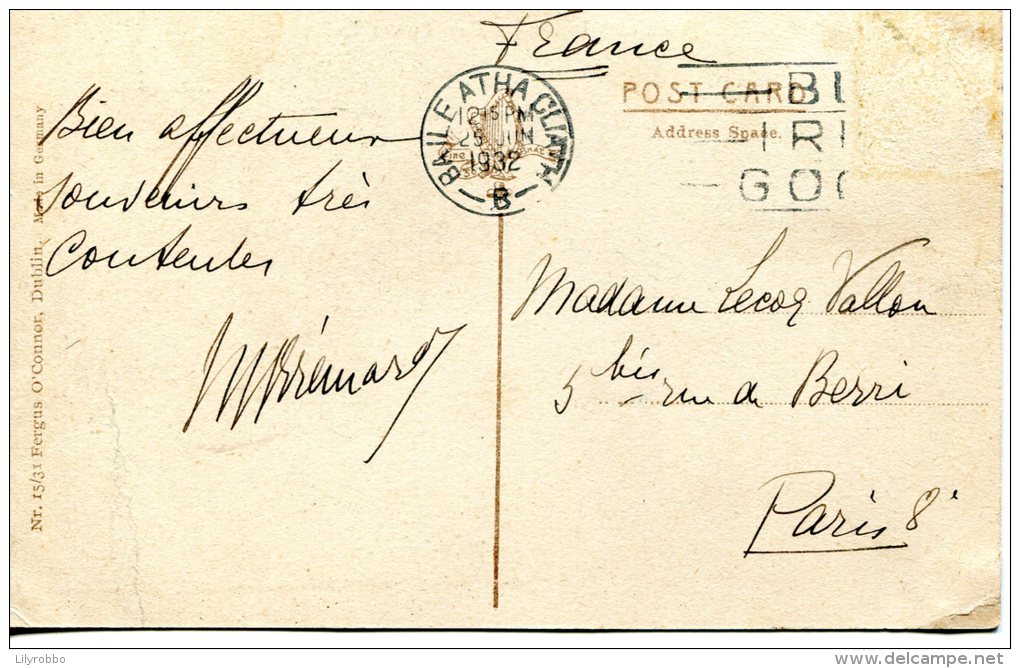 France
POST CARD
Address Space.
BAILE ATHA CLIATH
12 15 PM
25 JUN
1932
B
BU
IRI
GOO
Bien affectueux
souvenirs très
contentes
Madame Lecoq Vallon
5 bis rue de Berri
Paris 8e
Nr. 15/31 Fergus O'Connor, Dublin. Made in Germany
Lilyrobbo
www.delcampe.net